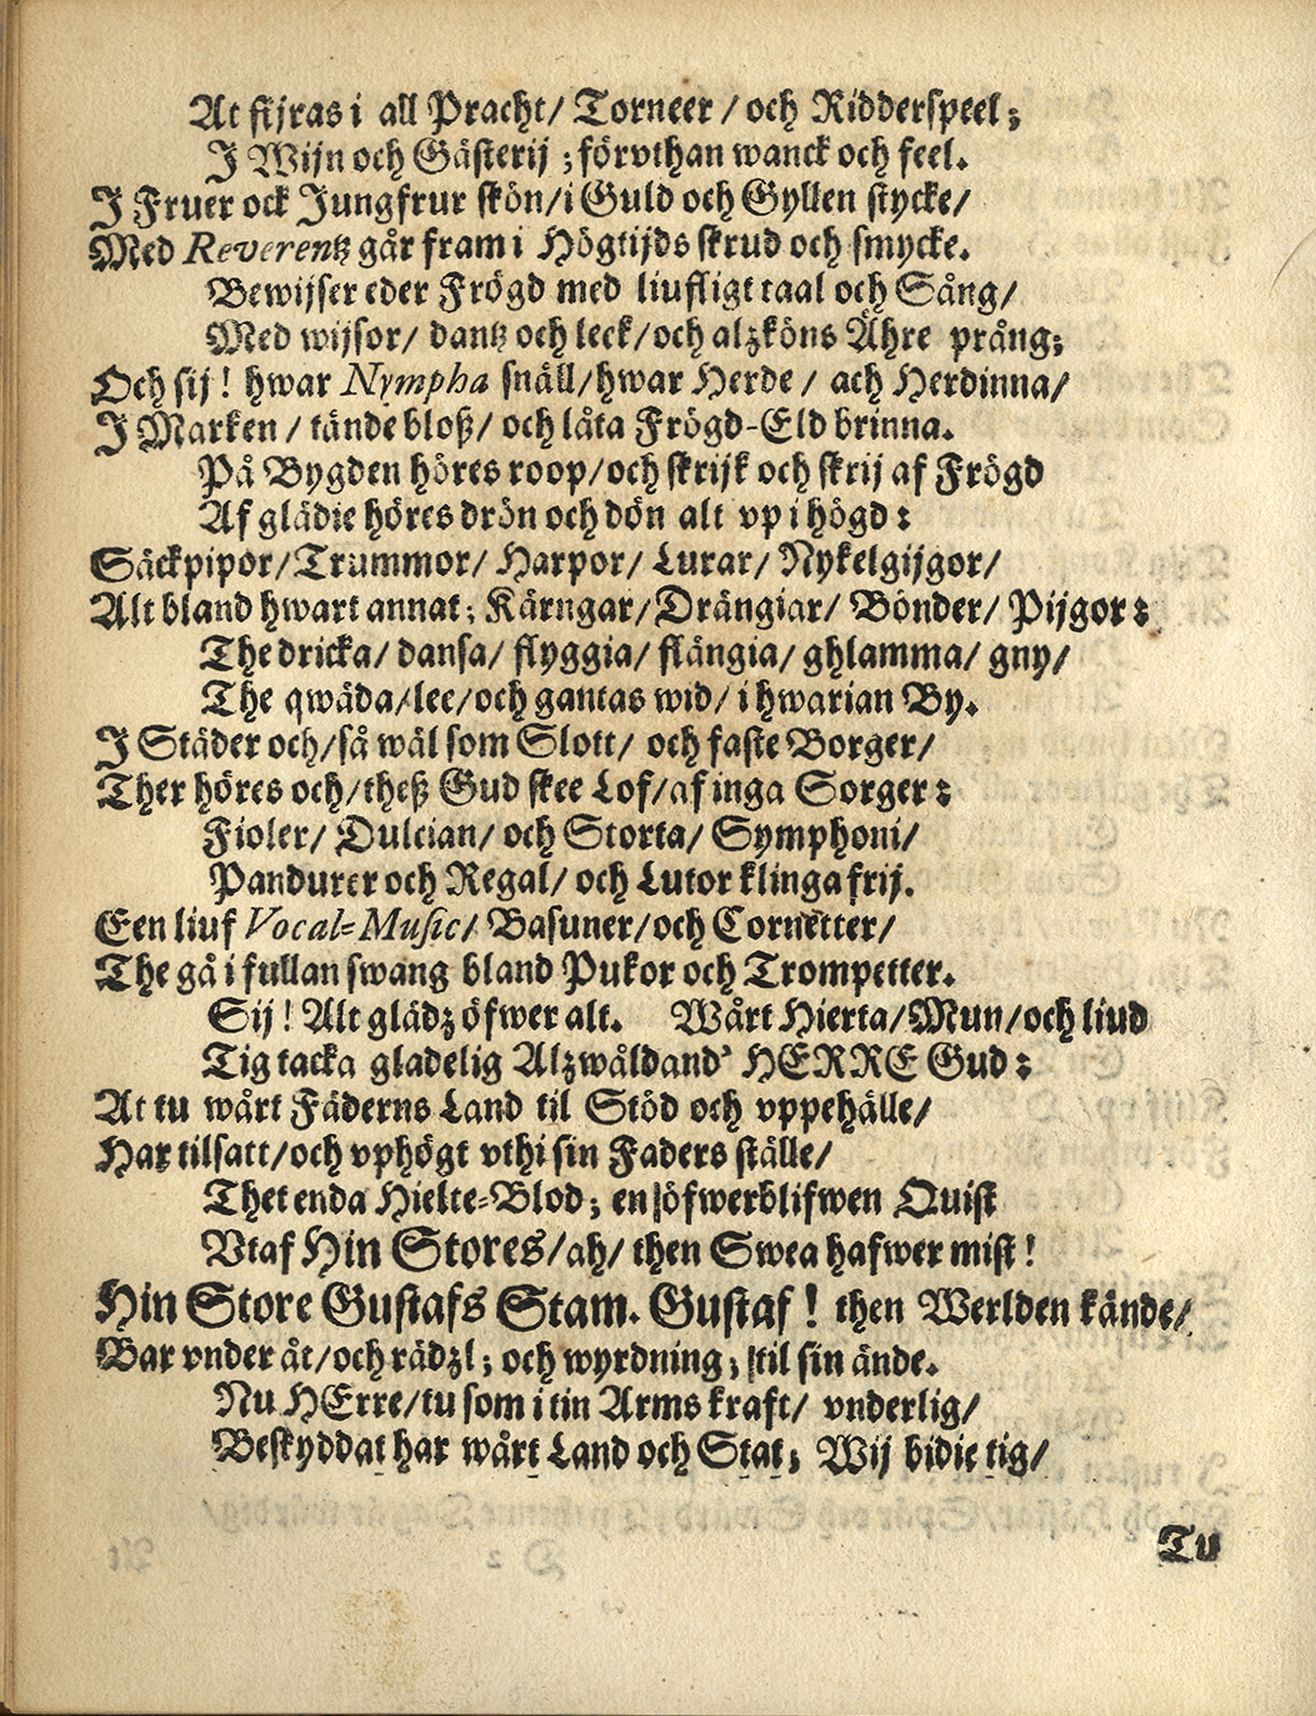 At fijras i all Pracht/ Torneer / och Ridderspeel;
I Wijn och Gästerij ; förvthan wanck och feel.
I Fruer ock Jungfrur skön/i Guld och Gyllen stycke/
Med Reverentz går fram i Högtijds skrud och smycke.
Bewijser eder Frögd med liufligt taal och Sång/
Med wijsor/ dantz och leck/och alzköns Ähre prång;
Och sij! hwar Nympha snäll/hwar Herde / ach Herdinna/
I Marken / tände bloß/ och låta Frögd-Eld brinna.
På Bygden höres roop/och skrijk och skrij af Frögd
Af glädie höres drön och dön alt vp i högd:
Säckpipor/Trummor/ Harpor/ Lurar/ Nykelgijgor/
Alt bland hwart annat; Kärngar/Drängiar/ Bönder/ Pijgor:
The dricka/ dansa/ flyggia/ flängia/ ghlamma/ gny/
The qwäda/lee/och gantas wid/ i hwarian By.
I Städer och/så wäl som Slott/ och faste Borger/
Ther höres och/theß Gud skee Lof/af inga Sorger:
Fioler/ Dulcian/ och Storta/ Symphoni/
Pandurer och Regal/ och Lutor klinga frij.
Een liuf Vocal-Music/ Basuner/och Cornetter/
The gå i fullan swang bland Pukor och Trompetter.
Sij! Alt glädz öfwer alt. Wårt Hierta/Mun/och liud
Tig tacka gladelig Alzwåldand' HERRE Gud:
At tu wårt Fäderns Land til Stöd och vppehälle/
Har tilsatt/och vphögt vthi sin Faders ställe/
Thet enda Hielte-Blod; en öfwerblifwen Quist
Vtaf Hin Stores/ah/ then Swea hafwer mist!
Hin Store Gustafs Stam. Gustaf! then Werlden kände/
Bar vnder åt/och rädzl; och wyrdning; til sin ände.
Nu HErre/tu som i tin Arms kraft/ vnderlig/
Beskyddat har wårt Land och Stat; Wij bidie tig/
Tu